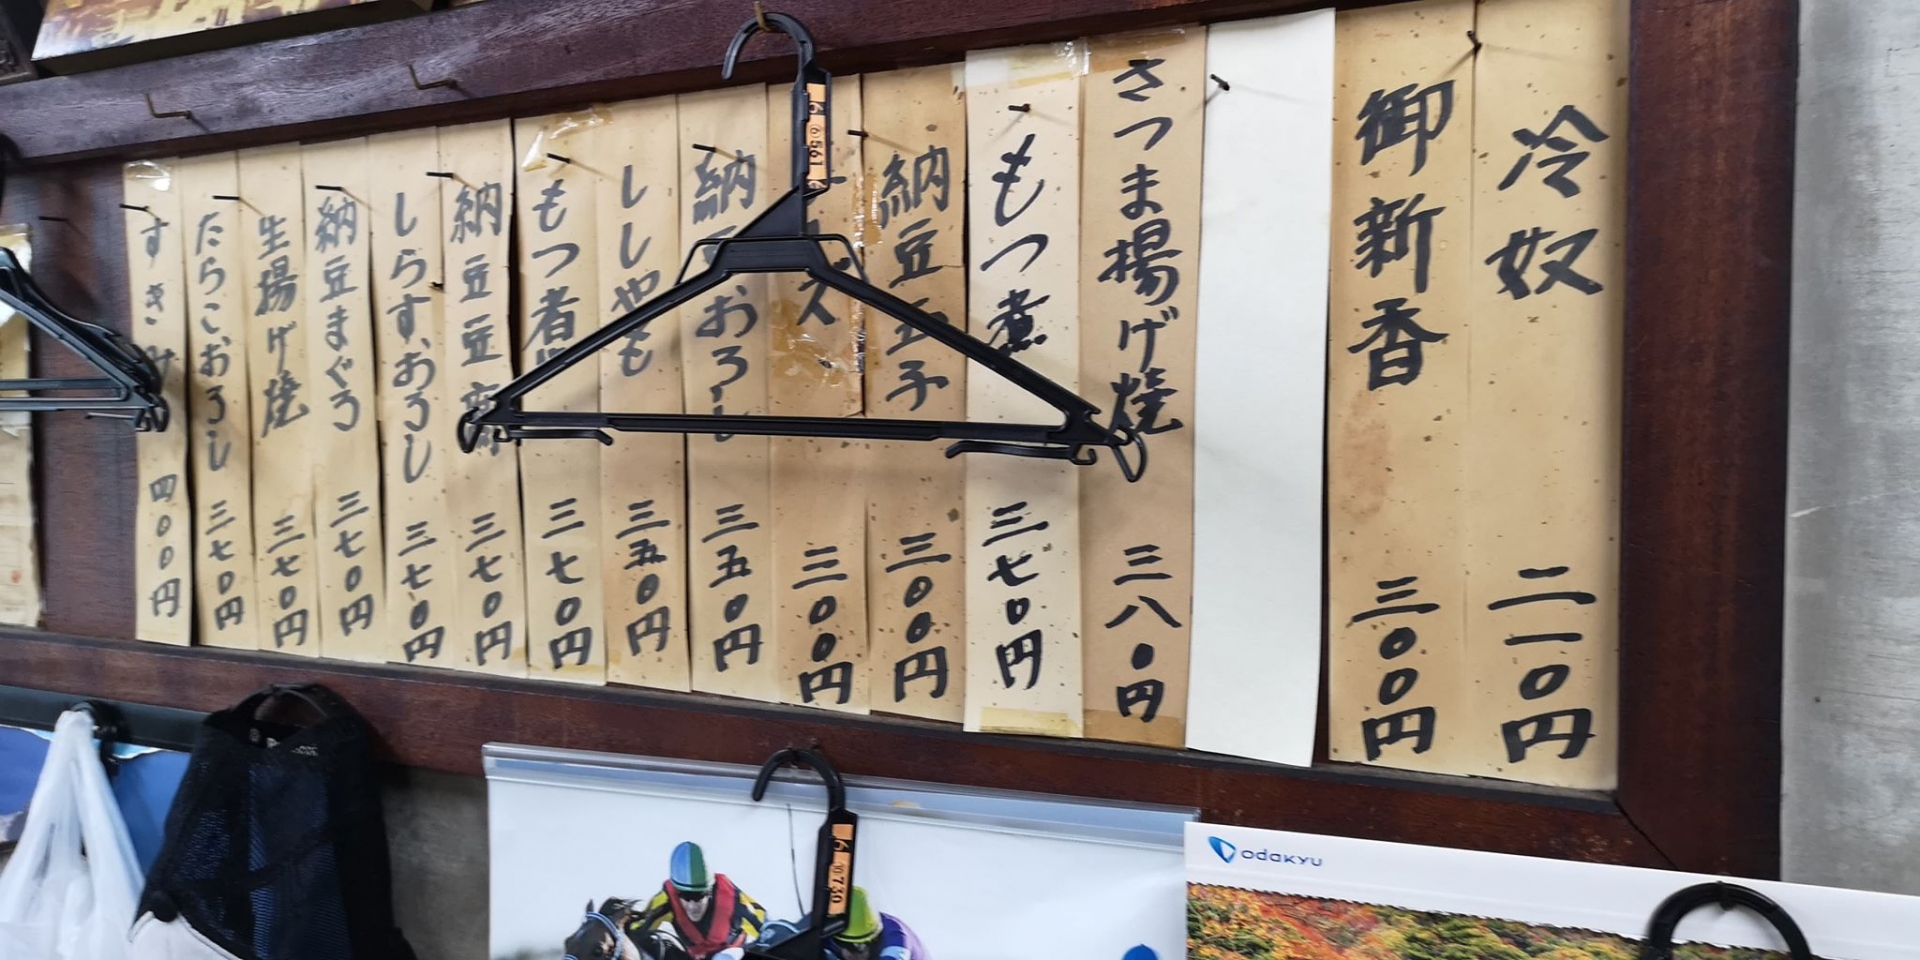 冷奴 二一〇円
御新香 三〇〇円
さつま揚げ焼 三八〇円
もつ煮 三七〇円
納豆玉子 三〇〇円
ズ 三〇〇円
納豆おろし 三五〇円
ししゃも 三五〇円
もつ煮 三七〇円
納豆豆腐 三七〇円
しらすおろし 三七〇円
納豆まぐろ 三七〇円
生揚げ焼 三七〇円
たらこおろし 三七〇円
すきみ 四〇〇円
6 561
6 730
odakyu